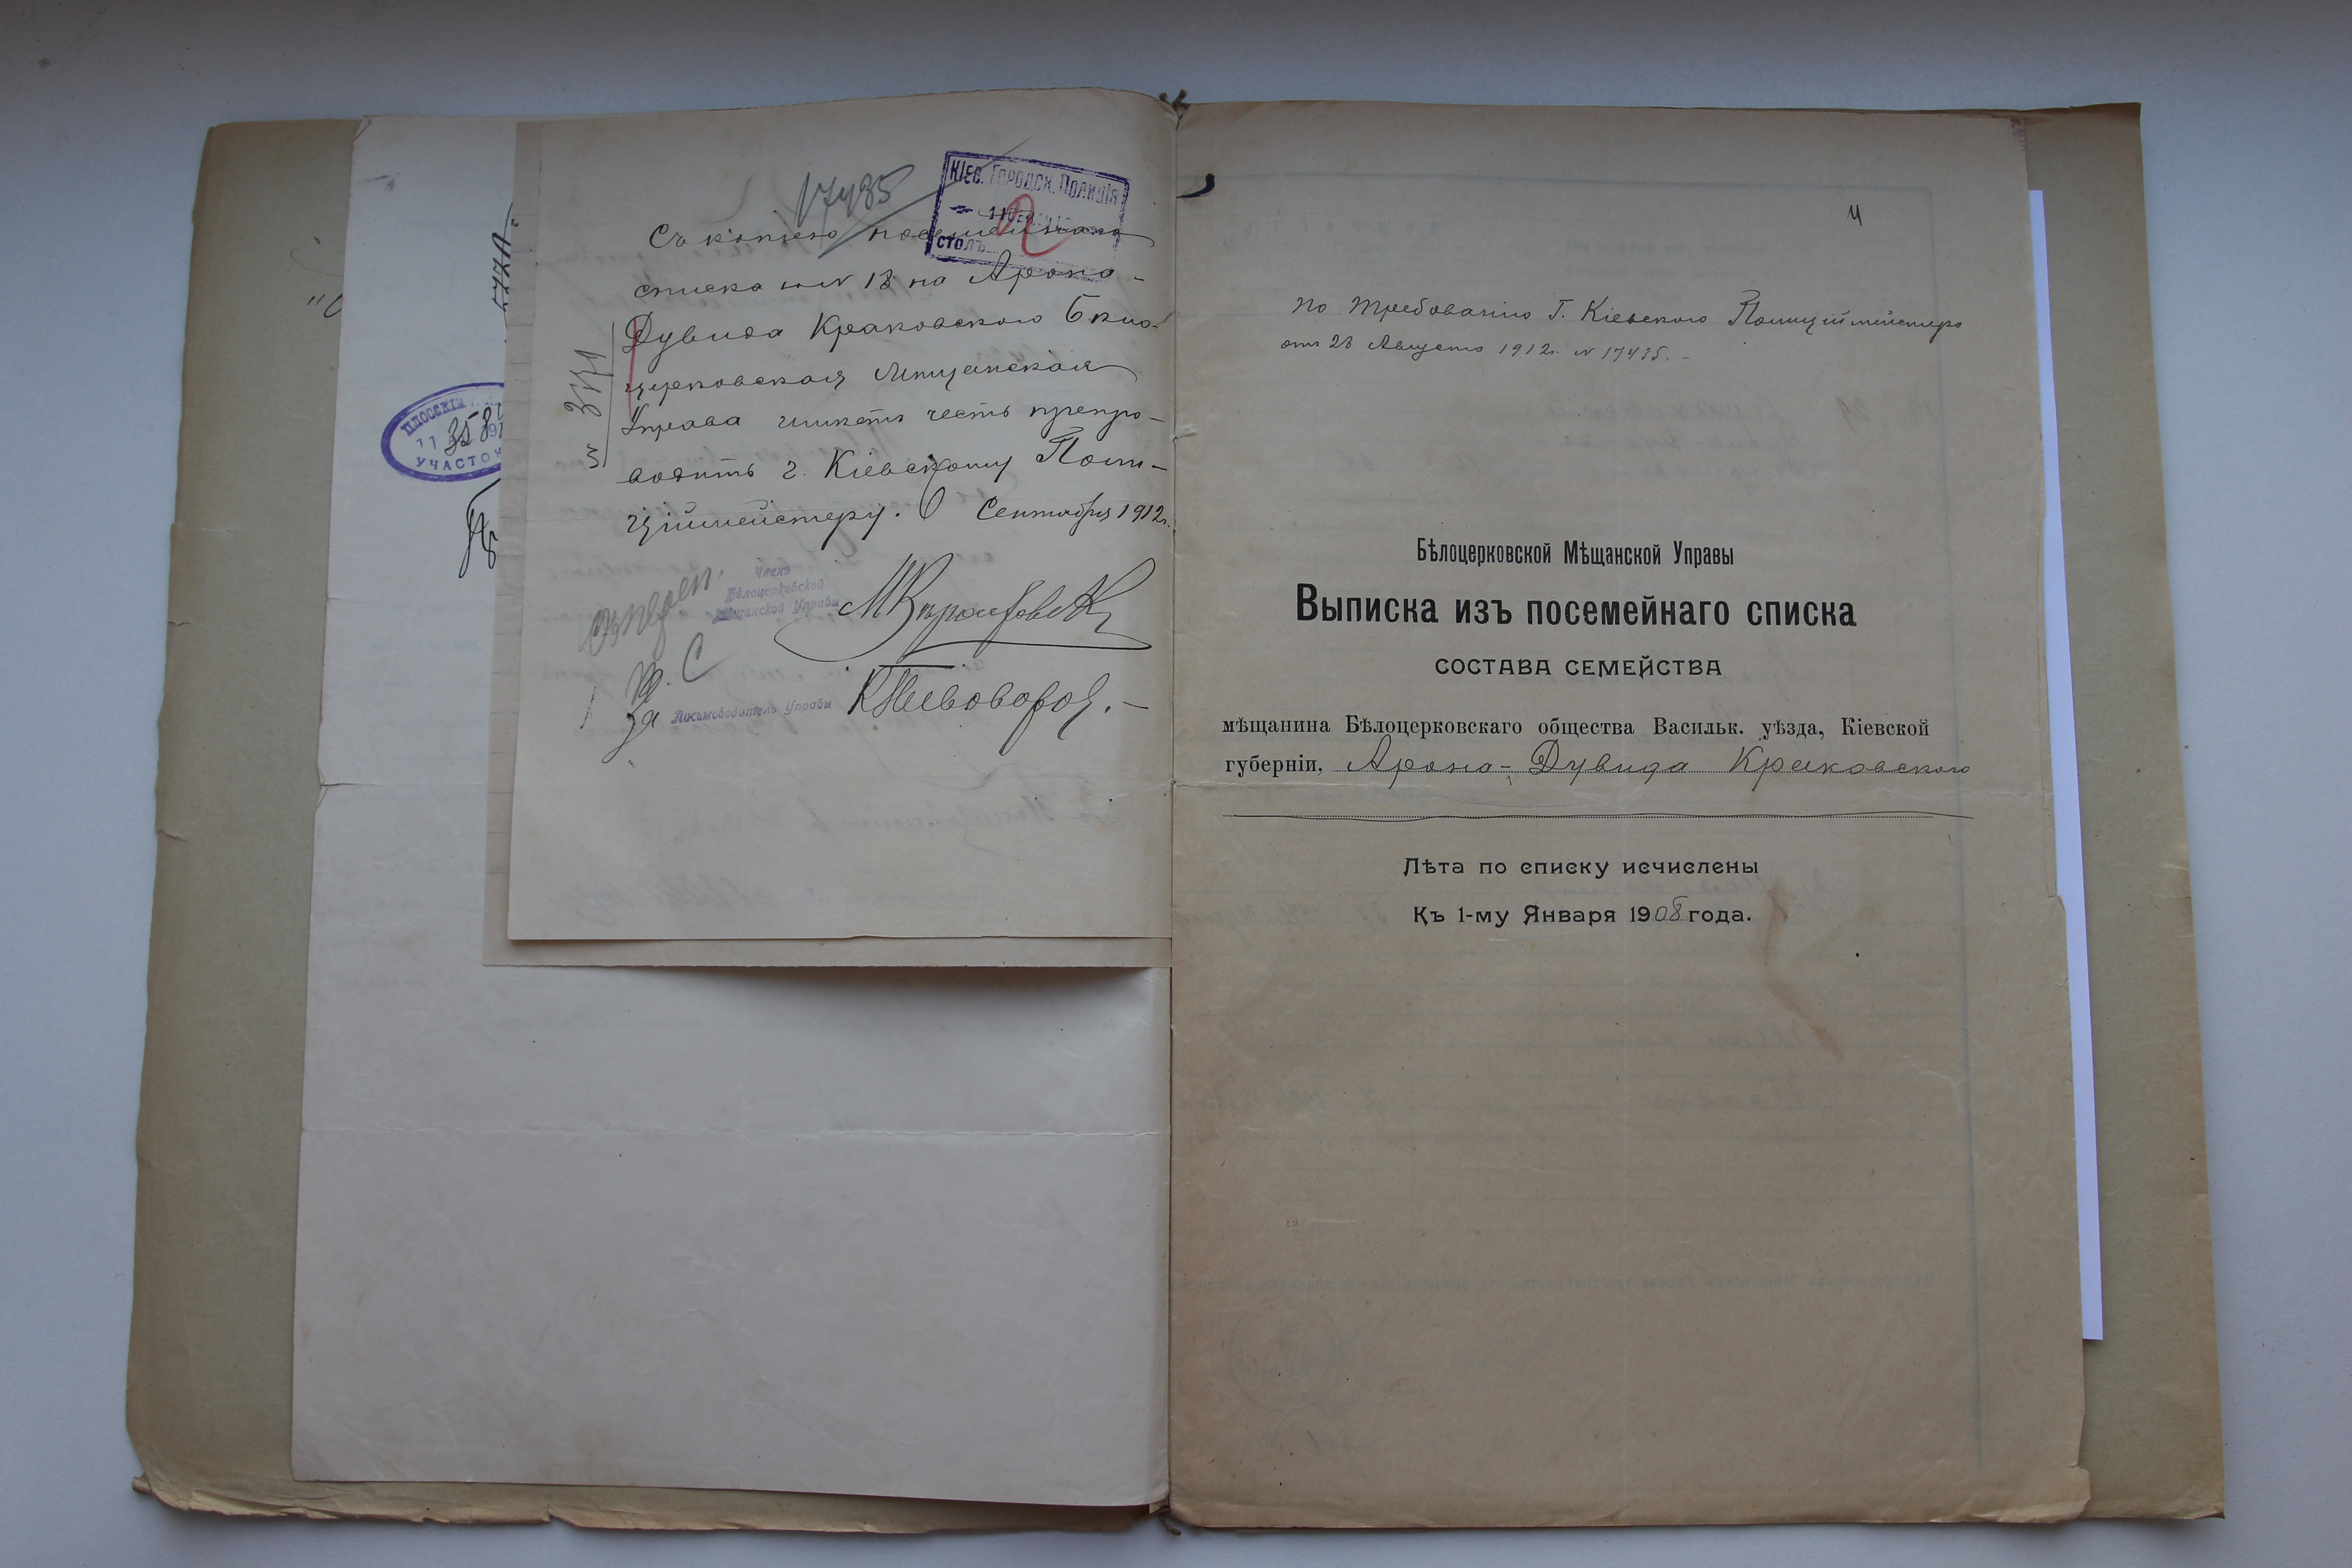 17435
Кіев. Городск. Полиція
столъ
Съ копією посемейнаго
списка за № 18 на Арона-
Дувида Краковского Бѣло-
церковская Мѣщанская
Управа имѣетъ честь препро-
водить г. Кіевскому Поли-
ційместеру. 6 Сентября 1912г.
Членъ
Бѣлоцерковской
Мѣщанской Управы
За Письмоводитель Управы КПивоваров.
ПЛОССКІЙ
358
УЧАСТОК
4
По требованію Г. Кіевского Полиційместера
отъ 23 Августа 1912г. № 17435.-
Бѣлоцерковской Мѣщанской Управы
Выписка изъ посемейнаго списка
СОСТАВА СЕМЕЙСТВА
мѣщанина Бѣлоцерковскаго общества Васильк. уѣзда, Кіевской
губерніи, Арона-Дувида Краковского
Лѣта по списку исчислены
Къ 1-му Января 1908 года.